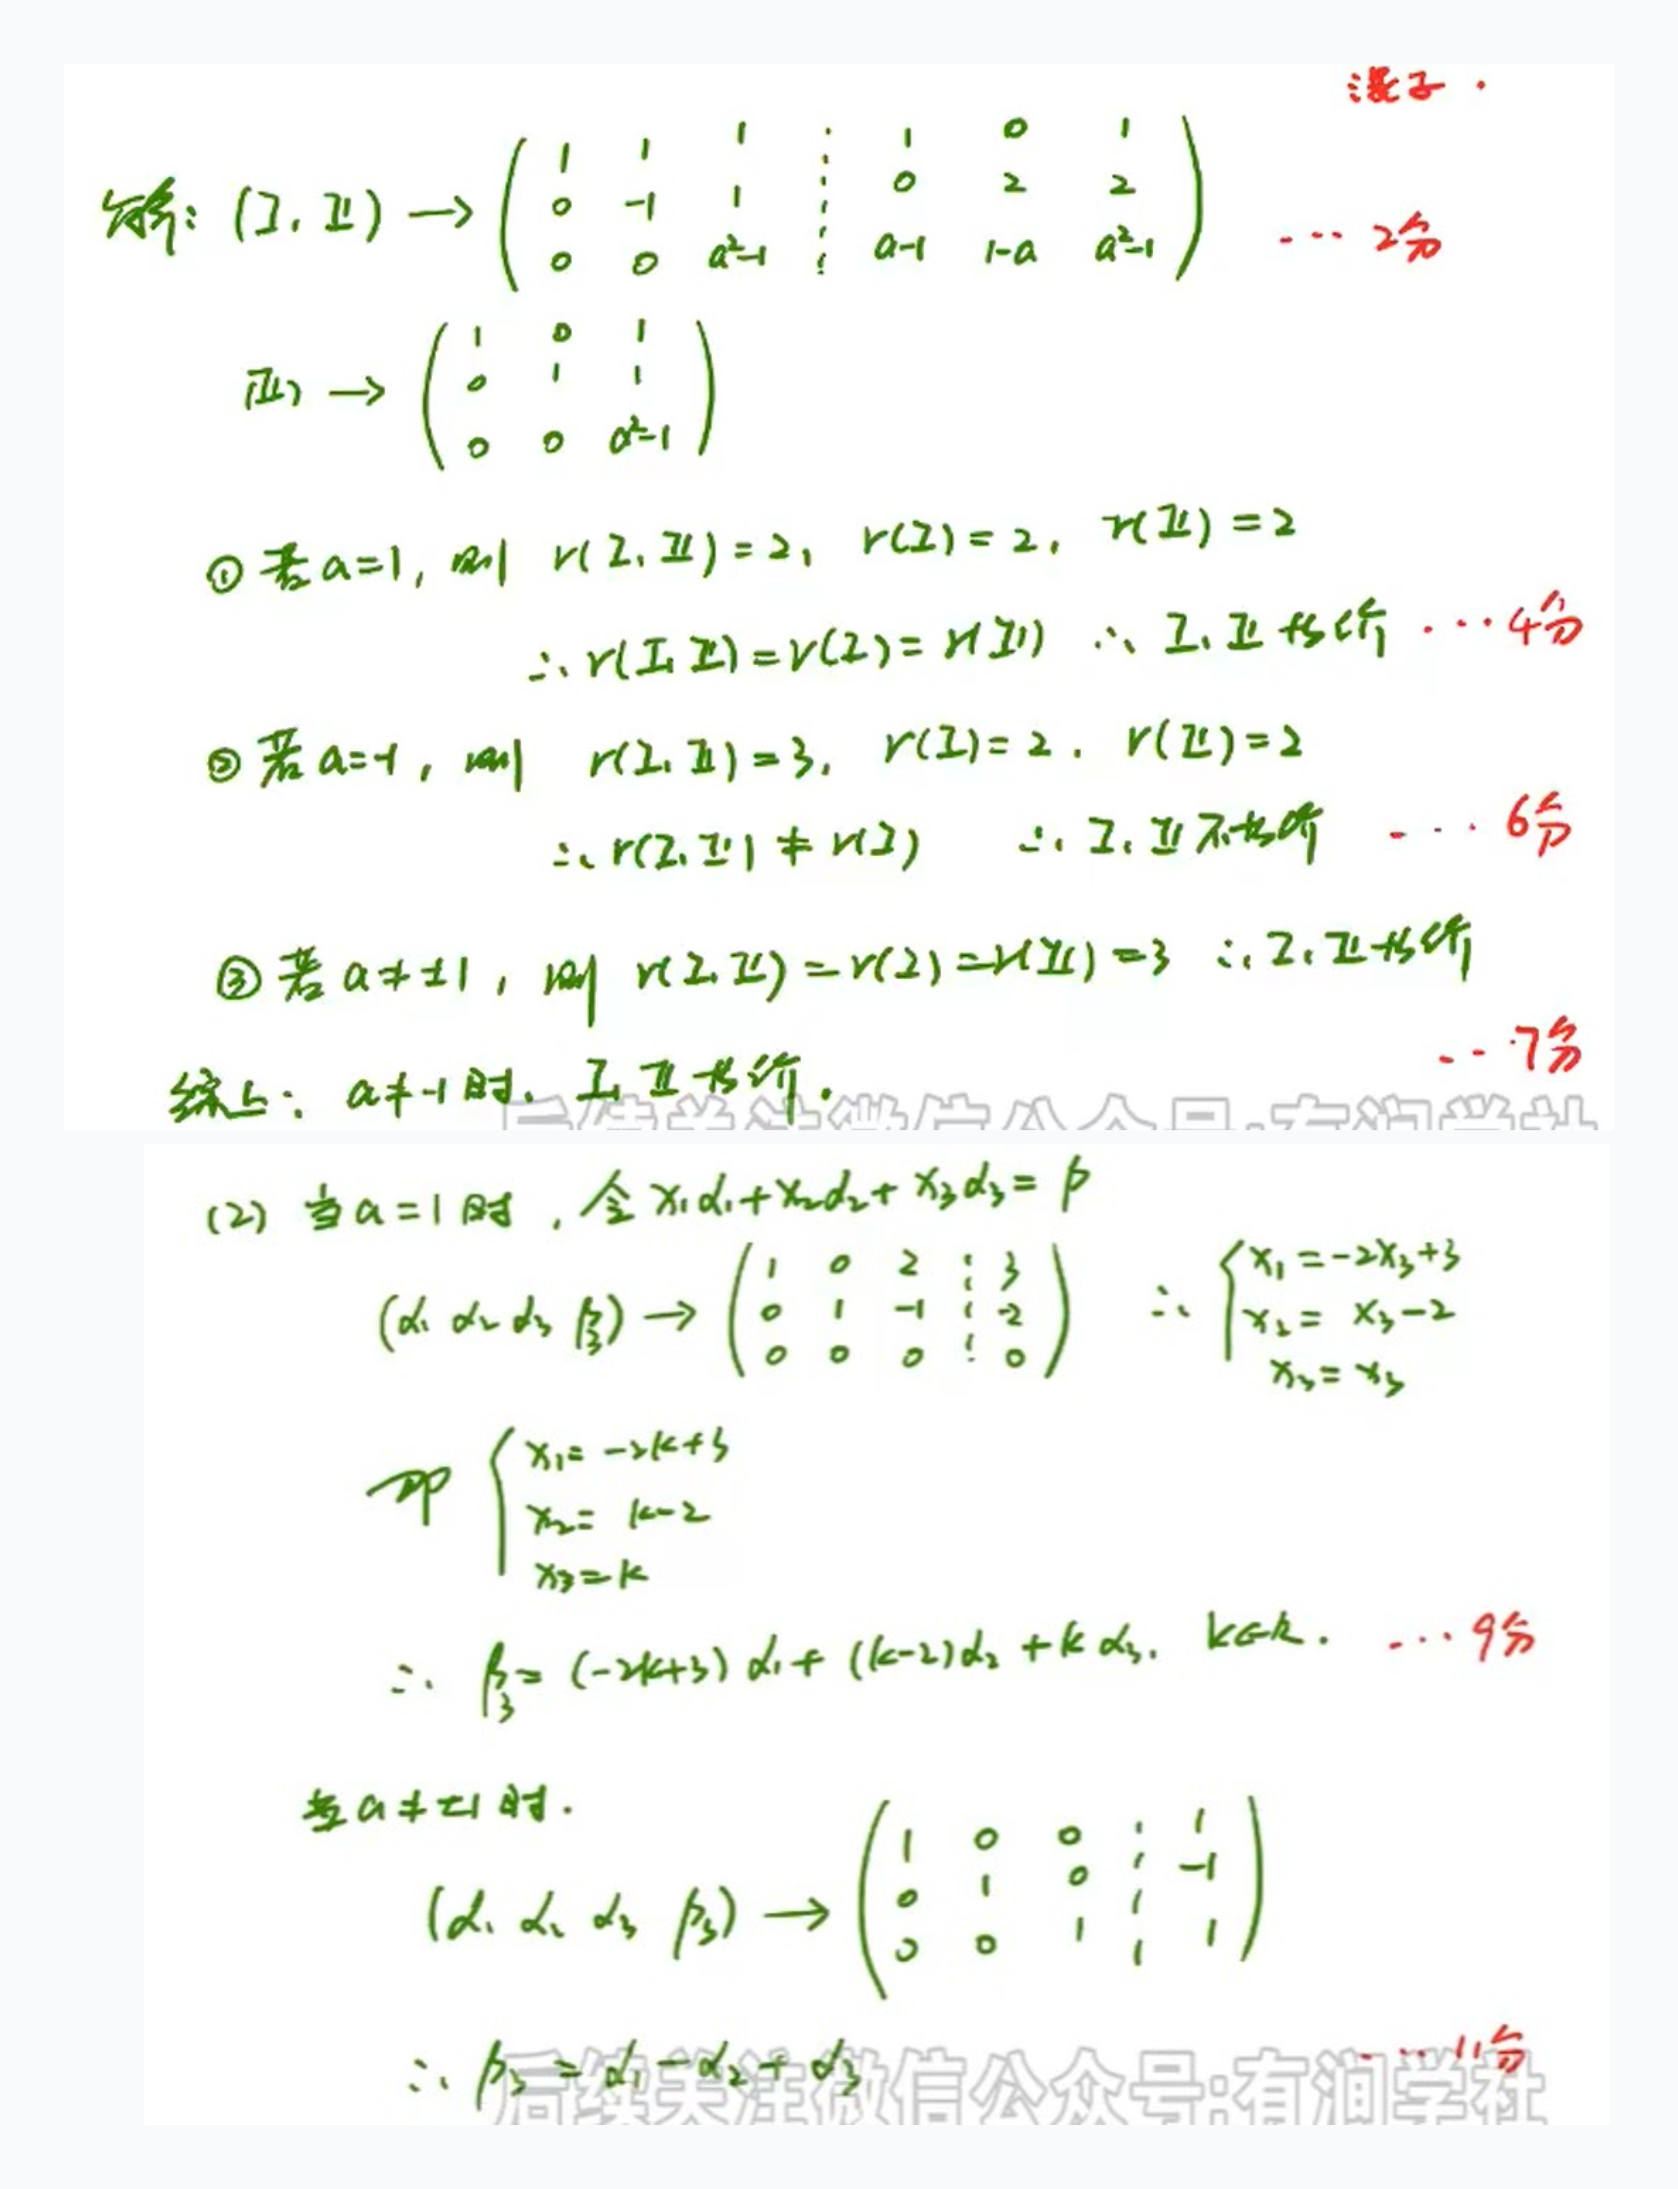 漫子.
分析: (I, II) → ( 1 1 1 ⋮ 1 0 1
0 -1 1 ⋮ 0 2 2
0 0 a²-1 ⋮ a-1 1-a a²-1 ) …2分
(II) → ( 1 0 1
0 1 1
0 0 a²-1 )
① 若a=1, 则 r(I, II)=2, r(I)=2, r(II)=2
∴ r(I, II)=r(I)=r(II) ∴ I, II 等价 …4分
② 若a=-1, 则 r(I, II)=3, r(I)=2, r(II)=2
∴ r(I, II)≠r(I) ∴ I, II 不等价 …6分
③ 若a≠±1, 则 r(I, II)=r(I)=r(II)=3 ∴ I, II 等价
…7分
综上: a≠-1时, I, II 等价.
后续关注微信公众号:有润学社
(2) 当a=1时, 令 x₁α₁+x₂α₂+x₃α₃=β
(α₁ α₂ α₃ β₃) → ( 1 0 2 ⋮ 3
0 1 -1 ⋮ -2
0 0 0 ⋮ 0 ) ∴ { x₁=-2x₃+3
x₂=x₃-2
x₃=x₃
即 { x₁=-2k+3
x₂=k-2
x₃=k
∴ β₃=(-2k+3)α₁+(k-2)α₂+kα₃, k∈R. …9分
当a≠±1时.
(α₁ α₂ α₃ β₃) → ( 1 0 0 ⋮ 1
0 1 0 ⋮ -1
0 0 1 ⋮ 1 )
∴ β₃=α₁-α₂+α₃ …11分
后续关注微信公众号:有润学社